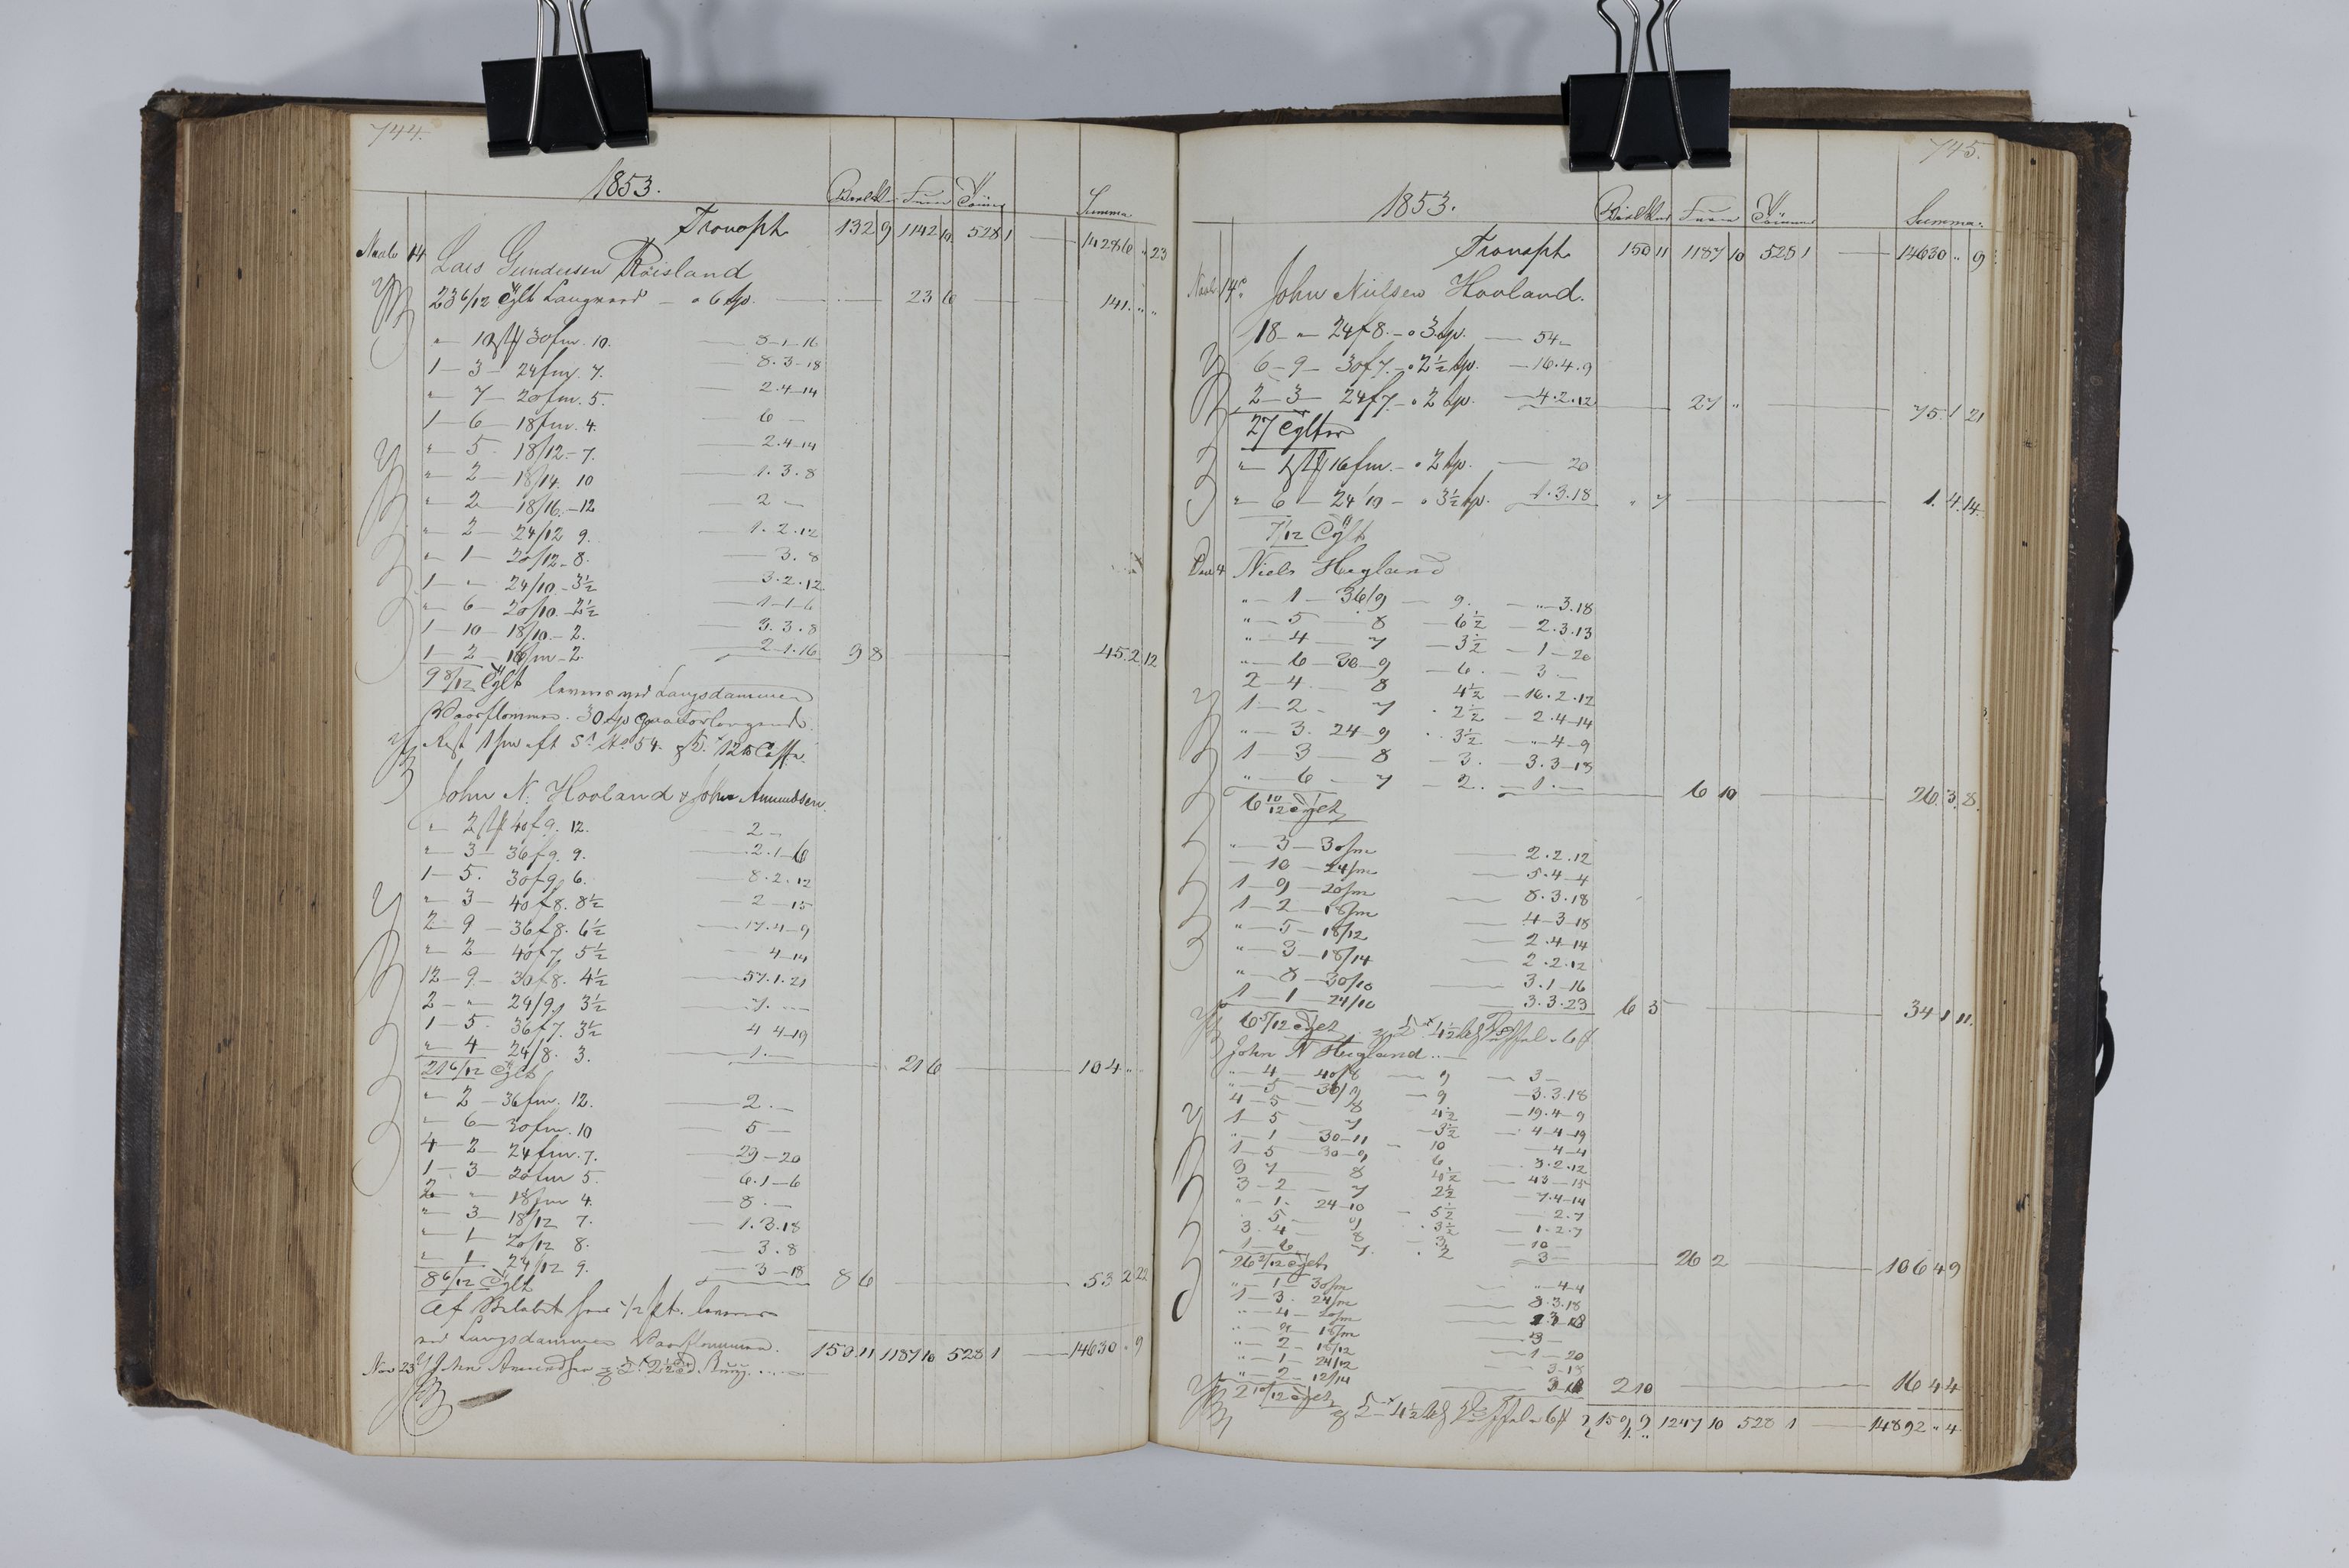 744.
1853.
Summa
Transpt. 132 9 1142 10 528 1 — 14286 " 23
14 Lars Gundersen Røisland
23 6/12 Tylt Langvard — a 6 sp. — 23 6 — 141. " "
" 10 stk 30 fm. 10. — 8-1-16
1 — 3 — 24 fm. 7. — 8.3-18
" 7 — 20 fm. 5. — 2.4-14
1 — 6 — 18 fm. 4. — 6 —
" 5 - 18/12 - 7. — 2.4-14
" 2 — 18/14. 10 — 1.3.8
" 2 — 18/16. - 12 — 2 —
" 2 — 24/12 9. — 1.2.12
" 1 — 20/12 - 8. — 3.8
1 — " 24/10 - 3½ — 3.2.12
" 6 — 20/10 - 2½ — 1-1-6
1 — 10 — 18/10 - 2. — 3.3.8
1 — 2 — 16 fm - 2. — 2-1.16 9 8 — 45.2.12
9 8/12 Tylt leveres ved Langsdammen
Vaarflommen. 30 sp
John N. Hooland & John Amundsen.
" 2 stk 40 f 9. 12. — 2 —
" 3 — 36 f 9. 9. — 2.1-6
1 — 5. 30 f 9, 6. — 8.2.12
" 3 — 40 f 8. 8½ — 2 — 15
2 — 9 — 36 f 8. 6½ — 17.4-9
" 2 — 40 f 7, 5½ — 4-14
12 — 9 — 30 f 8. 4½ — 57.1.21
2 — " — 24/9, 3½ — 7. —
1 — 5. 36 f 7. 3½ — 4 4-19
" 4 — 24/8. 3. — 1. —
21 6/12 Tylt — 21 6 — 104 "
" 2 — 36 fm. 12. — 2. —
" 6 — 30 fm. 10 — 5 —
4 — 2 — 24 fm. 7. — 29-20
1 — 3 — 20 fm 5. — 6.1-6
2 — " 18 fm 4. — 8. —
" 3 — 18/12 7. — 1.3.18
" 1 — 20/12 8. — 3.8
" 1 — 24/12 9. — 3-18
8 6/12 Tylt 8 6 — 53 2 22
Af leveres
ved Langsdammen Vaarflommen. 150.11 1187 10 528 1 — 14630 " 9
Nov 23 John Amundsen
745.
1853.
Summa.
Transpt. 150 11 1187 10 528 1 — 14630 " 9
14 John Nielsen Hooland.
18 " 24 f 8. - a 3 sp. — 54 "
6 — 9 — 30 f 7. - a 2½ sp. — 16.4.9
2 — 3 — 24 f 7 - a 2 sp. — 4.2.12 — 27 " — 75.1 21
27 Tylter
" 1 stk 16 fm. - a 2 sp. — 20
" 6 — 24/10 - a 3½ sp. — 1.3.18 " 7 — 1.4.14.
7/12 Tylt
4 Niels Hegland
" 1 — 36/9 — 9. — " 3.18
" 5 — 8 — 6½ — 2.3.13
" 4 — 7 — 3½ — 1-20
" 6 — 30-9 — 6. — 3 —
2 — 4. — 8 4½ — 16.2.12
1 — 2 - 7 2½ — 2.4-14
" 3. 24-9 3½ — " 4-9
1 — 3 — 8 — 3. — 3.3-18
" 6 — 7 — 2. — 1. — 6 10 — 26.3.8.
6 10/12 Tylt
" 3 — 30 fm — 2.2.12
" 10 — 24 fm — 5.4-4
1 — 9 — 20 fm — 8.3.18
1 — 2 — 18 fm — 4-3-18
" 5 — 18/12 — 2.4-14
" 3 — 18/14 — 2.2.12
" 8 — 30/10 — 3.1-16
1 — 1 — 24/10 — 3.3.23 6 5 — 34 1 11.
6 5/12 Tylt
John N Hegland
" 4 — 40/8 — 9 — 3 —
" 5 — 36/9 — 9 — 3.3.18
4 — 5 — 8 4½ — 19.4-9
1 — 5 — 7 3½ — 4-4-19
" 1 — 30-11 — 10 — 4-4
1 — 5 — 30-9 6 — 8.2.12
3 7 — 8 4½ — 43-15
3 — 2 — 7 2½ — 7.4-14
" 1 - 24-10 — 5½ — 2.7
" 5 — 9 3½ — 1.2.7
3. 4 — 8 3 — 10 —
1 — 6 — 7. 2 — 3 —
26 2/12 Tylt — 26 2 — 106 4 9
" 1 — 30 fm — 4-4
1 — 3. 24 fm — 8.3.18
" 4 — 20 fm
" 9 — 18 fm — 3 —
" 2 — 18/12 — 1-20
" 1 — 24/12 — 3-18
" 2 — 12/14
2 10/12 Tylt 2 10 — 16 4 4
159 9 1247 10 528 1 — 14892 " 4